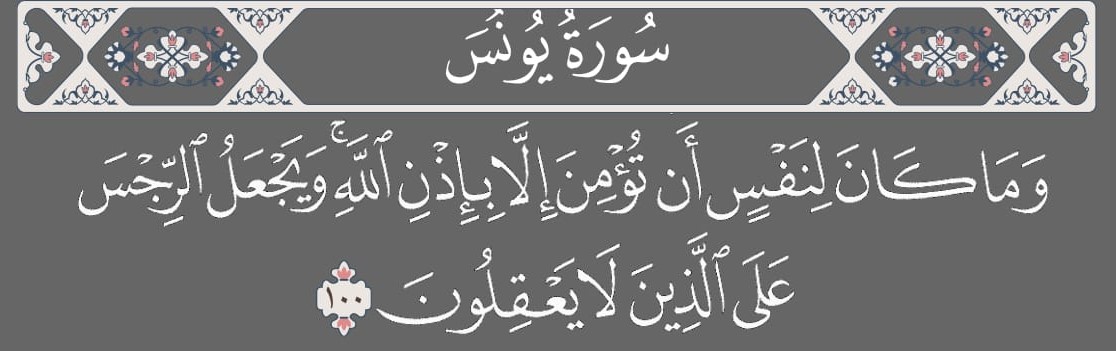 سُورَةُ يُونُسَ
وَمَا كَانَ لِنَفْسٍ أَن تُؤْمِنَ إِلَّا بِإِذْنِ ٱللَّهِۚ وَيَجْعَلُ ٱلرِّجْسَ
عَلَى ٱلَّذِينَ لَا يَعْقِلُونَ ١٠٠